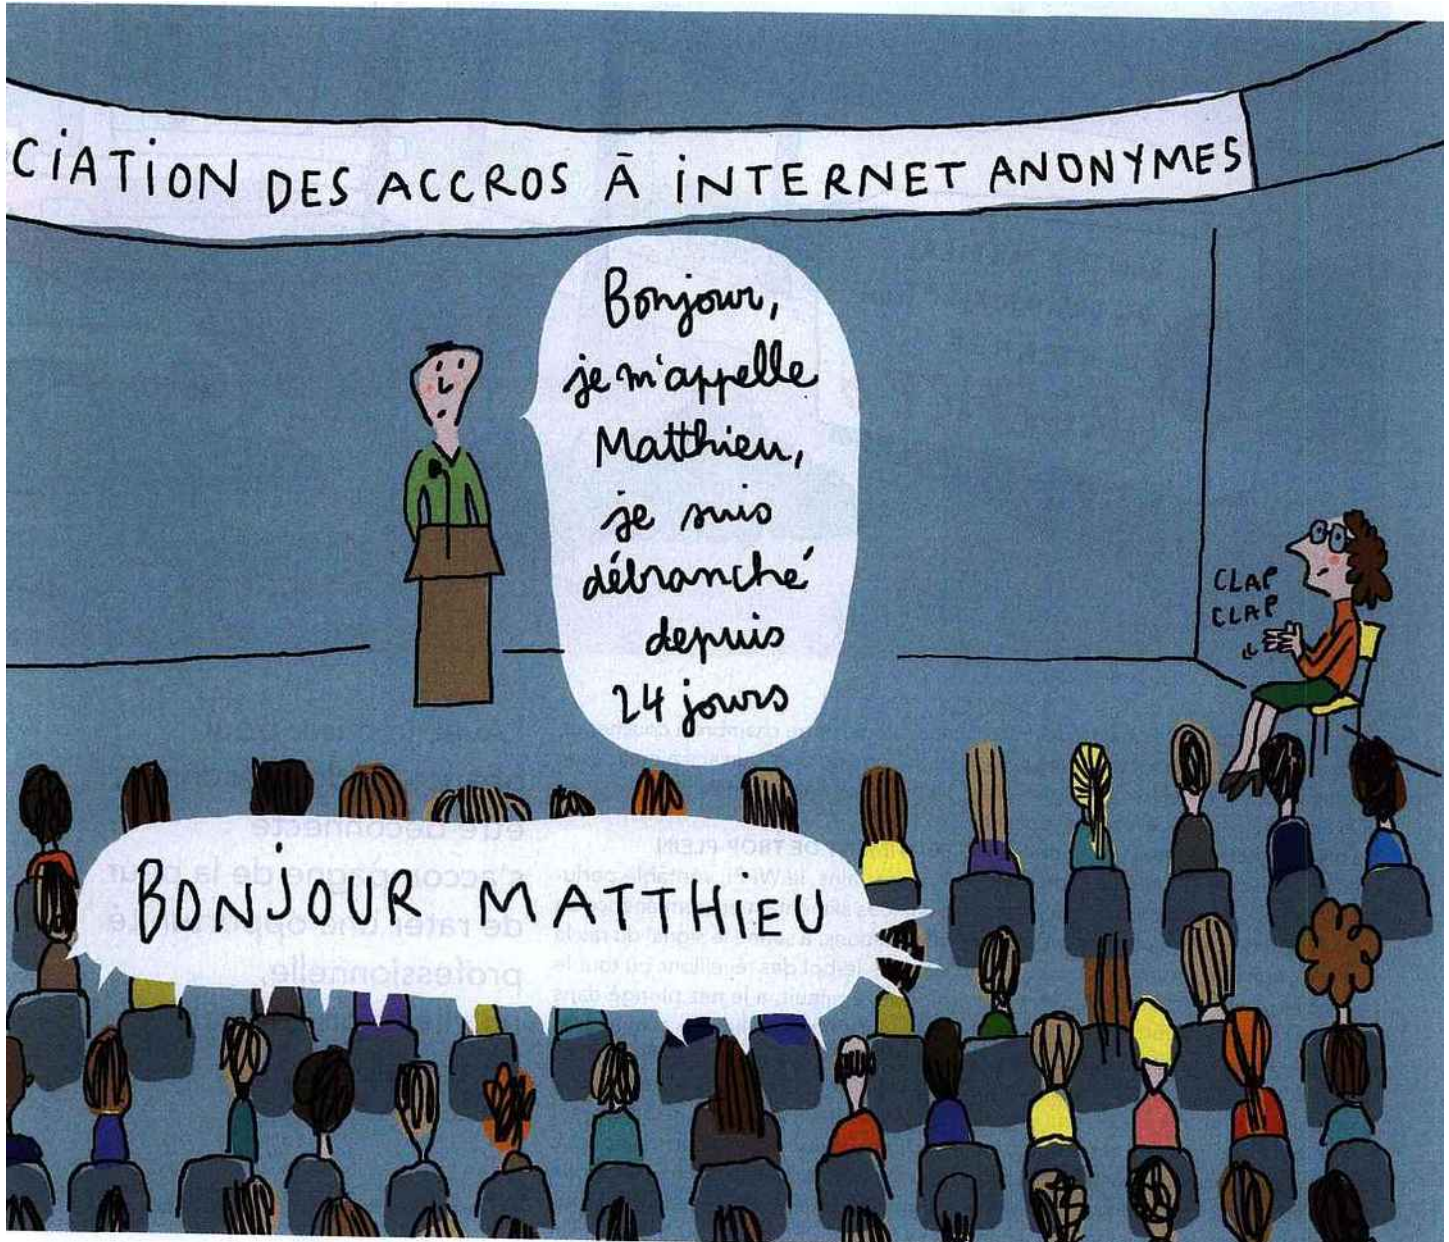 CIATION DES ACCROS À INTERNET ANONYMES
Bonjour,
je m'appelle
Matthieu,
je suis
débranché
depuis
24 jours
CLAP
CLAP
BONJOUR MATTHIEU